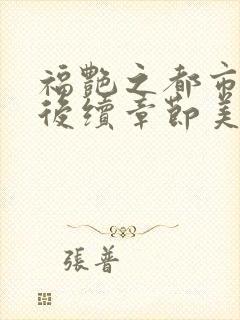 福艷之都市
後續章節美
張普